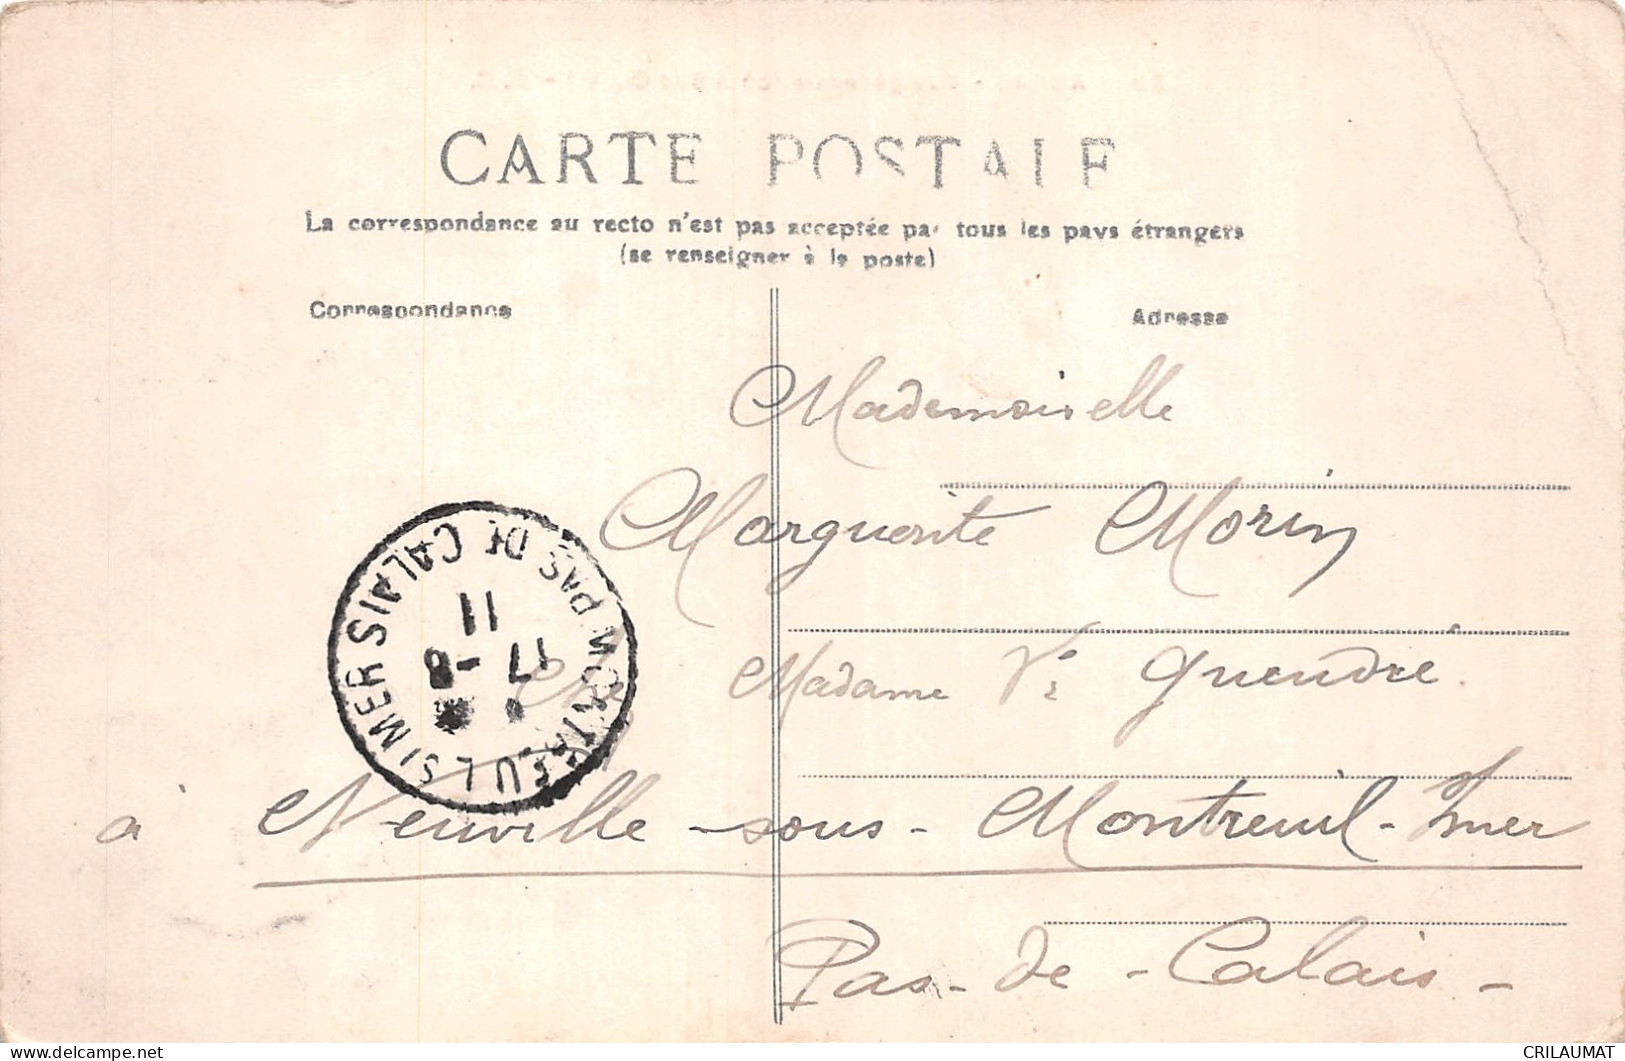 CARTE POSTALE
La correspondance au recto n'est pas acceptée par tous les pays étrangers
(se renseigner à la poste)
Correspondance
Adresse
Mademoiselle
Marguerite Morin
Madame Vve Guendré
à Neuville-sous-Montreuil-s/mer
Pas-de-Calais-
MONTREUIL S/MER PAS DE CALAIS
11
17 -8
CRILAUMAT